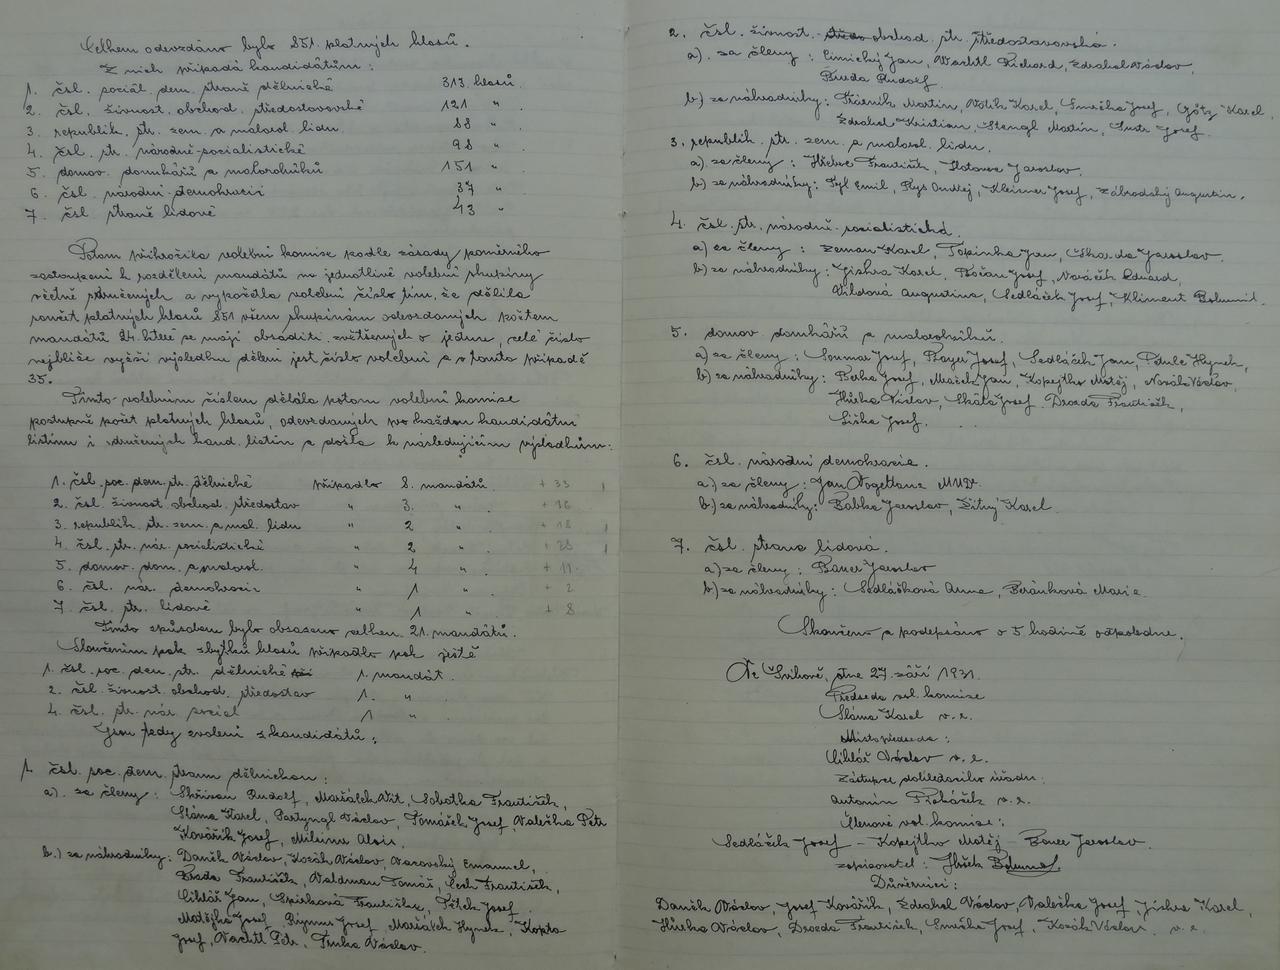 Celkem odevzdáno bylo 851 platných hlasů.
Z nich připadá kandidátům:
1. čsl. sociál. dem. straně dělnické 313 hlasů.
2. čsl. živnost. obchod. středostavovské 121 "
3. republik. str. zem. a malorol. lidu 88 "
4. čsl. str. národně-socialistické 98 "
5. domov. domkářů a malorolníků 151 "
6. čsl. národní demokracii 37 "
7. čsl. straně lidové 43 "
Potom přikročila volební komise podle zásady poměrného
zastoupení k rozdělení mandátů na jednotlivé volební skupiny
včetně sdružených a vypočetla volební číslo tím, že dělila
součet platných hlasů 851 všem skupinám odevzdaných počtem
mandátů 24 které se mají obsaditi zvětšených o jednu, celé číslo
nejblíže vyšší výsledku dělení jest číslo volební a v tomto případě
35.
Tímto volebním číslem dělila potom volební komise
postupně počet platných hlasů, odevzdaných pro každou kandidátní
listinu i sdružených kand. listin a došla k následujícím výsledkům:
1. čsl. soc. dem. str. dělnické připadlo 8. mandátů. + 33
2. čsl. živnost. obchod. středostav " 3. " + 16
3. republik. str. zem. a mal. lidu " 2 " + 18
4. čsl. str. nár. socialistické " 2 " + 28
5. domov. dom. a malorol. " 4 " + 11
6. čsl. nár. demokracii " 1 " + 2
7. čsl. str. lidové " 1 " + 8
Tímto způsobem bylo obsazeno celkem 21. mandátů.
Sloučením pak zbytků hlasů připadlo pak ještě
1. čsl. soc. dem. str. dělnické 1. mandát.
2. čsl. živnost. obchod. středostav 1. "
4. čsl. str. nár. social 1 "
Jsou tedy zvoleni z kandidátů:
1. čsl. soc. dem. stranu dělnickou:
a). za členy: Rudolf, Maršálek Vít, Sobotka František,
Sláma Karel, Václav, Tomášek Josef, Valečka Petr
Kovářík Josef, Alois.
b.) za náhradníky: Daněk Václav, Kozák Václav, Emanuel,
František, Valdman Tomáš, Čech František,
Cihlář Jan, Františka, Josef
Matějka Josef, Josef Maršálek Hynek, Kopta
Josef, Wachtl Petr, Trnka Václav.
2. čsl. živnost. obchod. str. středostavovská.
a). za členy: Jan, Wachtl Richard, Zdrahal Václav,
Rudolf.
b) za náhradníky: Martin, Karel, Smrčka Josef, Götz Karel,
Zdrahal Kristian, Stengl Martin, Josef.
3. republik. str. zem. a malorol. lidu.
a). za členy: František, Jaroslav.
b) za náhradníky: Tyl Emil, Ondřej, Kleisner Josef, Zábrodský Augustin.
4. čsl. str. národně-socialistická.
a) za členy: Zeman Karel, Topinka Jan, Škarda Jaroslav.
b) za náhradníky: Jiskra Karel, Josef, Eduard,
Augustina, Sedláček Josef, Kliment Bohumil.
5. domov. domkářů a malorolníků.
a) za členy: Josef, Josef, Sedláček Jan, Hynek,
b) za náhradníky: Josef, Mašek Jan, Kopejtko Matěj, Novák Václav,
Hůrka Václav, Skála Josef, Drozda František,
Liška Josef.
6. čsl. národní demokracie.
a.) za členy: Jan MUDr.
b.) za náhradníky: Babka Jaroslav, Žitný Karel
7. čsl. strana lidová.
a) za členy: Bauer Jaroslav
b) za náhradníky: Sedláčková Anna, Beránková Marie.
Skončeno a podepsáno o 5 hodině odpoledne.
Ve Švihově, dne 27. září 1931.
Předseda vol. komise
Sláma Karel v. r.
Místopředseda:
Cihlář Václav v. r.
Zástupce dohlédacího úřadu:
Antonín v. r.
Členové vol. komise:
Sedláček Josef – Kopejtko Matěj – Bauer Jaroslav.
zapisovatel:
Důvěrníci:
Daněk Václav, Josef Kovářík, Zdrahal Václav, Valečka Josef, Jiskra Karel,
Hůrka Václav, Drozda František, Smrčka Josef, Kozák Václav v. r.